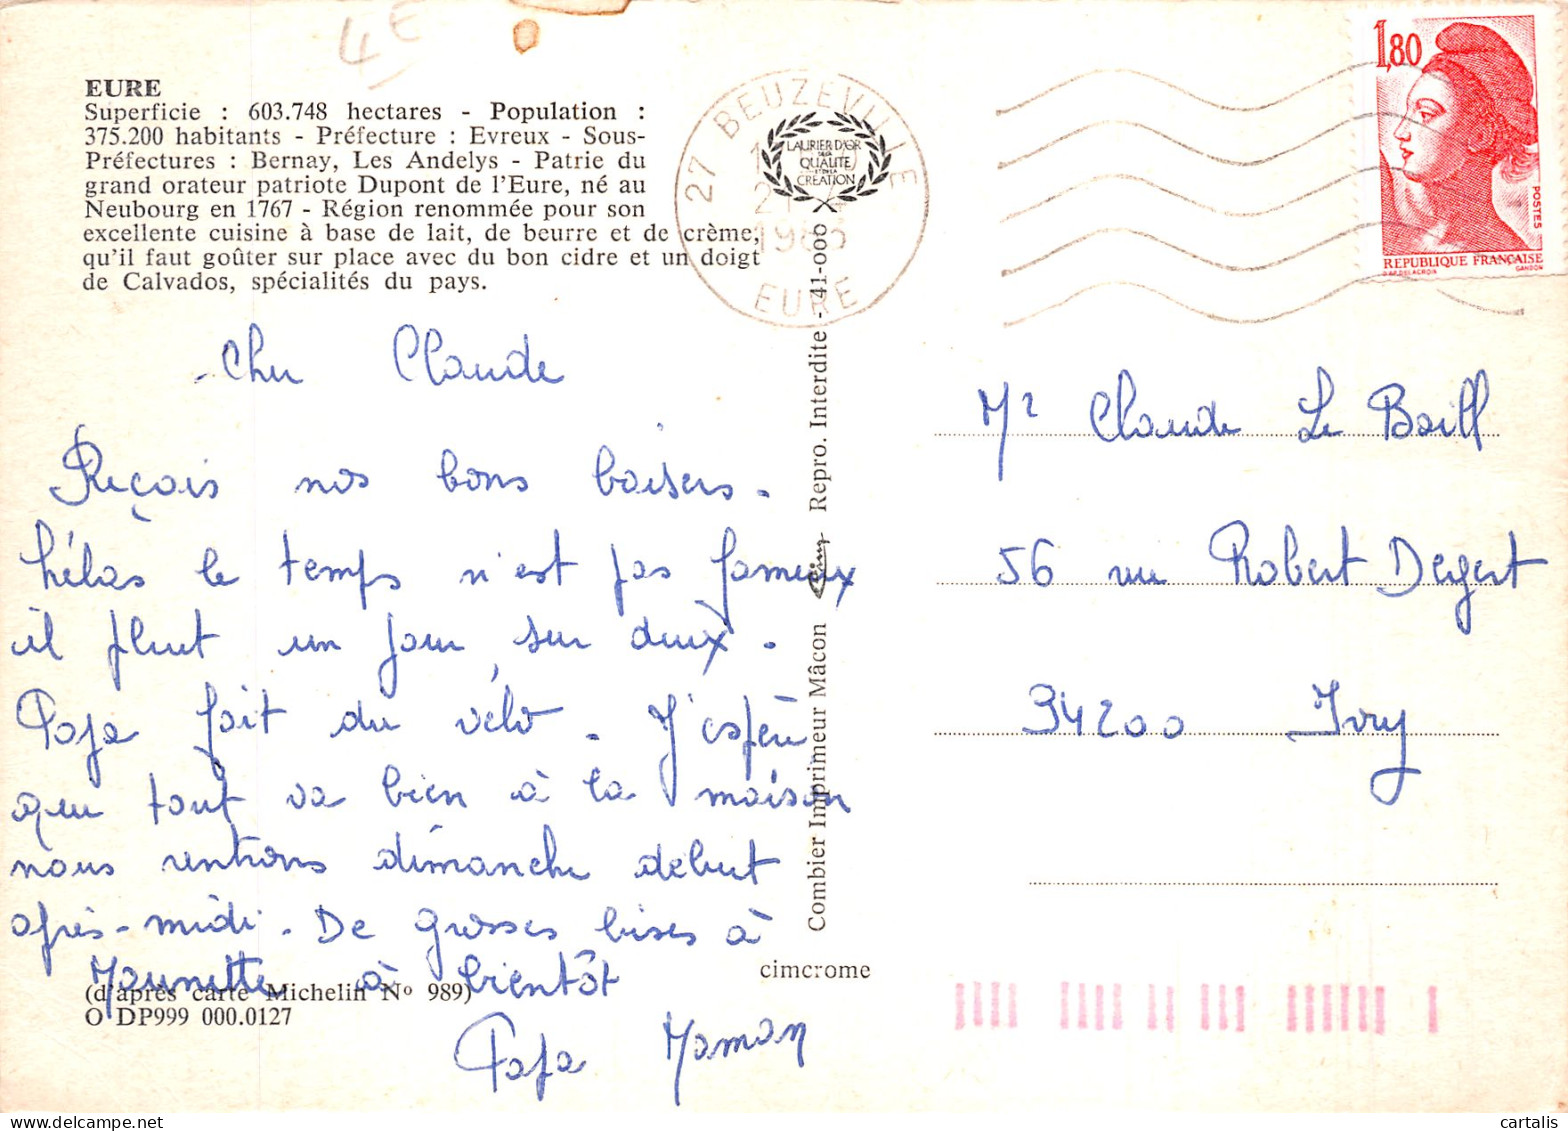 4E
EURE
Superficie : 603.748 hectares - Population :
375.200 habitants - Préfecture : Evreux - Sous-
Préfectures : Bernay, Les Andelys - Patrie du
grand orateur patriote Dupont de l'Eure, né au
Neubourg en 1767 - Région renommée pour son
excellente cuisine à base de lait, de beurre et de crème,
qu'il faut goûter sur place avec du bon cidre et un doigt
de Calvados, spécialités du pays.
27 BEUZEVILLE
EURE
LAURIER D'OR
DE LA
QUALITE
ET DE LA
CREATION
1,80
POSTES
REPUBLIQUE FRANÇAISE
D'AP. DELACROIX GANDON
Cher Claude
Reçois nos bons baisers.
hélas le temps n'est pas fameux
il pleut un jour sur deux.
Papa fait du vélo. J'espère
que tout va bien à la maison
nous rentrons dimanche début
après-midi. De grosses bises à
à bientôt
Papa Maman
(d'après carte Michelin Nº 989)
O DP999 000.0127
cimcrome
Combier Imprimeur Mâcon Cim Repro. Interdite - 41-000
Mr Claude Le Baill
56 rue Robert Degert
94200 Ivry
cartalis